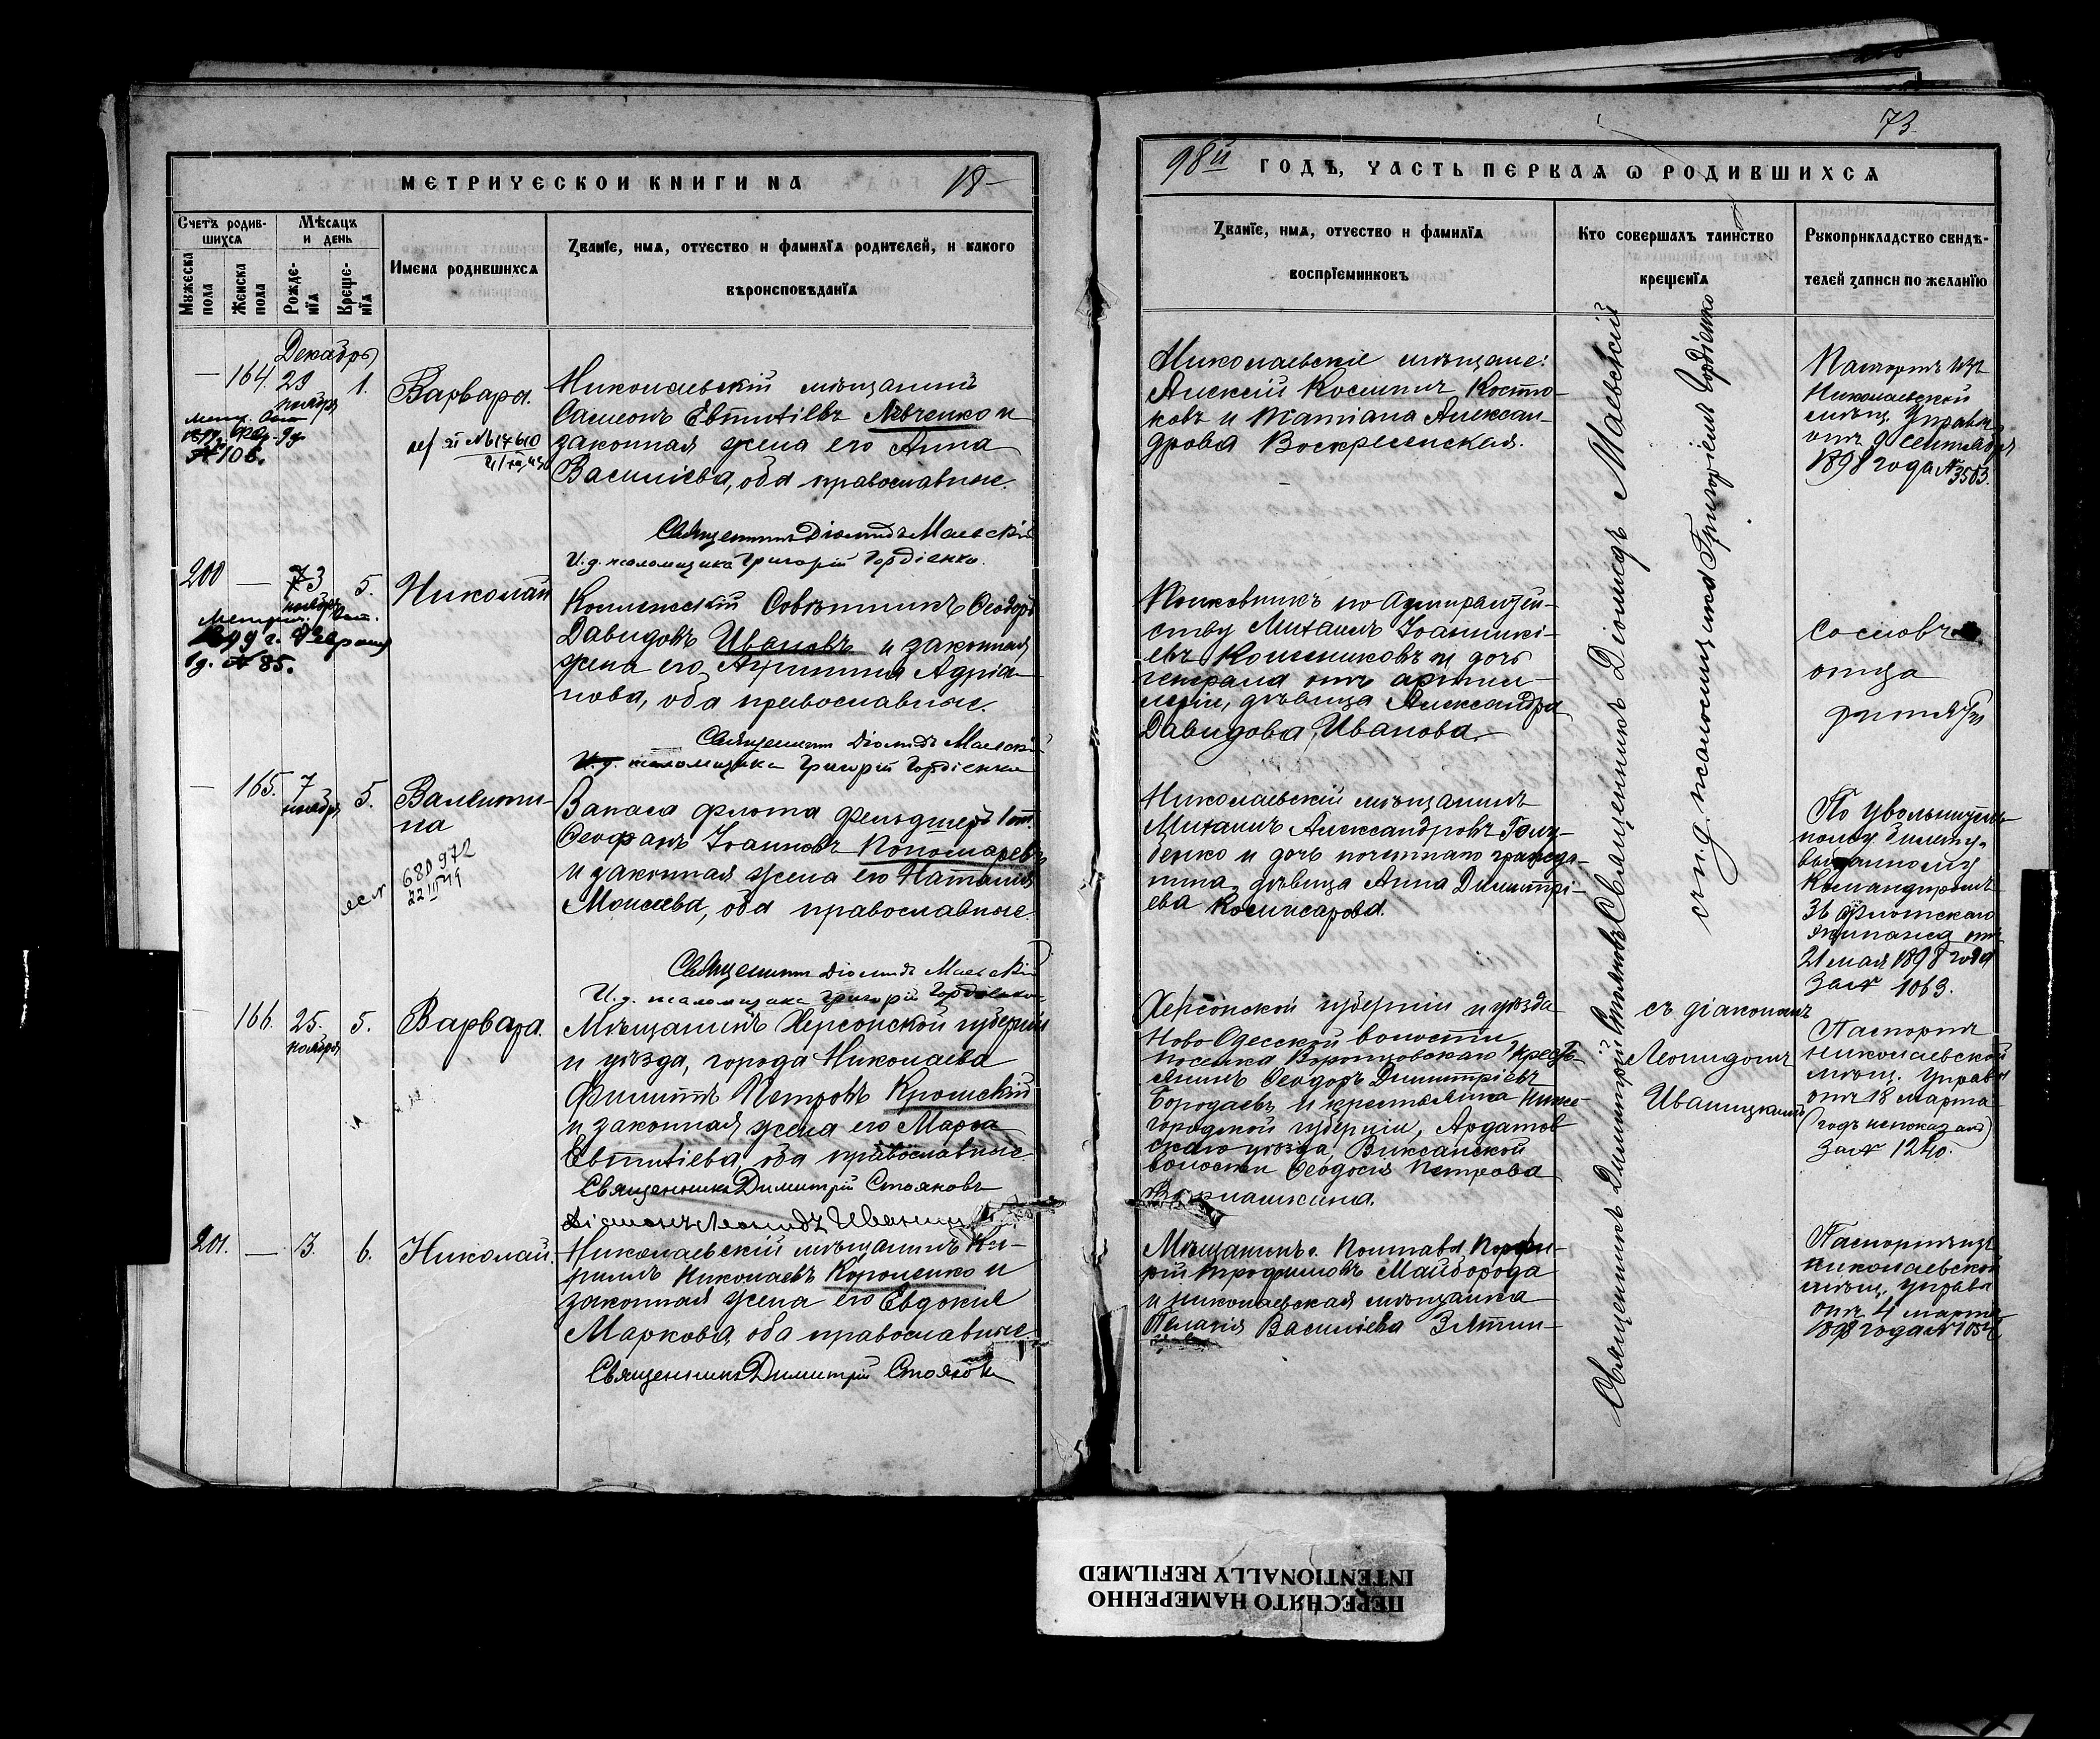 73
МЕТРИЧЕСКОИ КНИГИ NА 18–
98й ГОДЪ, ЧАСТЬ ПЕРВАѦ Ѡ РОДИВШИХСѦ
Счетъ родив-
шихсѧ
Мѣсѧцъ
и день
Мꙋжеска
пола
Женска
пола
Рожде-
нїѧ
Креще-
нїѧ
Имена родившихсѧ
Званїе, имѧ, отчество и фамилїѧ родителей, и какого
вѣроисповѣданїѧ
Званїе, имѧ, отчество и фамилїѧ
воспрїемниковъ
Кто совершалъ таинство
крещенїѧ
Рꙋкоприкладство свидѣ-
телей записи по желанїю
Декабрь
— 164. 29 1.
ноября
№ 106.
Варвара.
№17610
Николаевскій мѣщанинъ
Самсонъ Евтихіевъ Левченко и
законная жена его Анна
Васильева, оба православные.
Священникъ Діомидъ Маевскій
И.д. псаломщика Григорій Гордіенко.
Николаевскіе мѣщане:
Алексій Космичъ Косто-
ковъ и Татіана Алексан-
дрова Воскресенская.
Паспортъ изъ
Николаевской
мѣщ. Управы
отъ 9 Сентября
1898 года №3503.
200 — 3 5.
ноября
1899 г. Февраля
9д. № 85.
Николай
Коллежскій Совѣтникъ Ѳеодоръ
Давидовъ Ивановъ и законная
жена его Агрипина Адріа-
нова, оба православные.
Священникъ Діомидъ Маевскій
И.д. псаломщика Григорій Гордіенко
Полковникъ по Адмиралтей-
ству Михаилъ Іоанники-
евъ Колесниковъ и дочь
генерала отъ артил-
леріи, дѣвица Александра
Давидова Иванова.
Со словъ
отца
— 165. 7 5.
ноября
Валенти-
на
680972
22 III 49
Запаса флота фельдшеръ 1 ст.
Ѳеофанъ Іоанновъ Пономаревъ
и законная жена его Наталія
Моисеева, оба православные.
Священникъ Діомидъ Маевскій
И.д. псаломщика Григорій Гордіенко
Николаевскій мѣщанинъ
Михаилъ Александровъ Голу-
бенко и дочь почетнаго гражда-
нина, дѣвица Анна Димитрі-
ева Комисарова.
По увольнитель-
ному билету,
выданному
Командиромъ
36 флотскаго
экипажа отъ
21 мая 1898 года
за № 1063.
166. 25. 5.
ноября
Варвара.
Мѣщанинъ Херсонской губерніи
и уѣзда, города Николаева
Филиппъ Петровъ Кромскій
и законная жена его Марѳа
Евтихіева, оба православные
Священникъ Димитрій Стояновъ
Діаконъ Леонидъ Иваницкій
Херсонской губерніи и уѣзда
Ново Одесской волости,
поселка Воронцовскаго крестья-
янинъ Ѳеодоръ Димитріевъ
Бородаевъ и крестьянка Ниже-
городской губерніи, Ардатов-
скаго уѣзда, Виксанской
волости Ѳеодосія Петрова
съ діакономъ
Леонидомъ
Иваницкимъ
Паспортъ
николаевской
мѣщ. управы
отъ 18 марта
(годъ непоказанъ)
за № 1240.
201. — 3. 6.
Николай.
Николаевскій мѣщанинъ Ки-
риллъ Николаевъ Короленко и
законная жена его Евдокія
Маркова, оба православные.
Священникъ Димитрій Стояновъ
Мѣщанинъ г. Полтавы Порфи-
рій Трофимовъ Майборода
и николаевская мѣщанка
Пелагія Василіева Зятин-
Паспортъ изъ
николаевской
мѣщ. управы
отъ 4 марта
1898 года №
Священникъ Димитрій Стояновъ Священникъ Діомидъ Маевскій
съ и.д. псаломщика Григоріемъ Гордіенко
ПЕРЕСНЯТО НАМЕРЕННО
INTENTIONALLY REFILMED